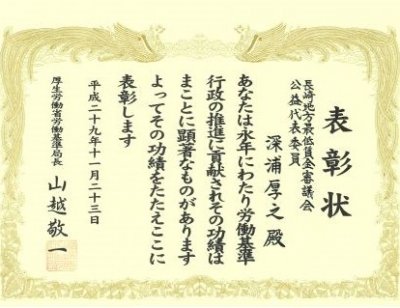 表彰状
長崎地方最低賃金審議会
公益代表委員
深浦厚之殿
あなたは永年にわたり労働基準
行政の推進に貢献されその功績は
まことに顕著なものがあります
よってその功績をたたえここに
表彰します
平成二十九年十一月二十三日
厚生労働省労働基準局長
山越敬一